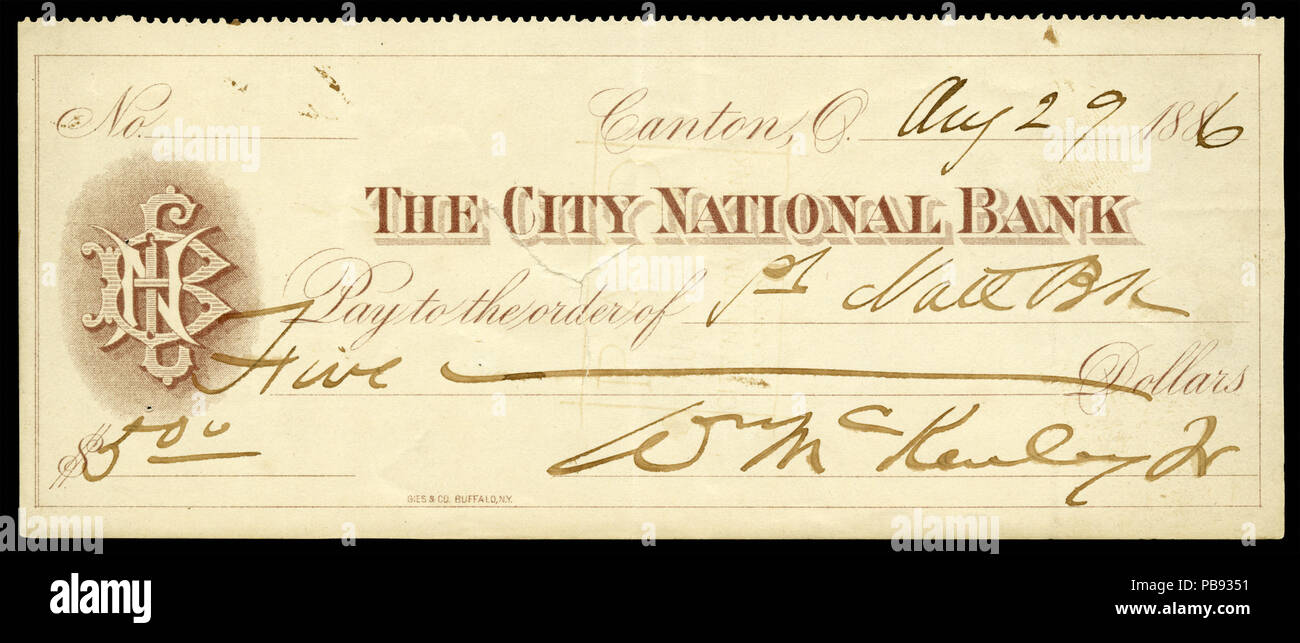 No. Canton, O. Aug 29 1886
THE CITY NATIONAL BANK
CNB
Pay to the order of 1st Natl Bk
Five Dollars
$5 00 Wm McKinley Jr
GIES & CO. BUFFALO, N.Y.
alamy
alamy
Image ID: PB9351
www.alamy.com